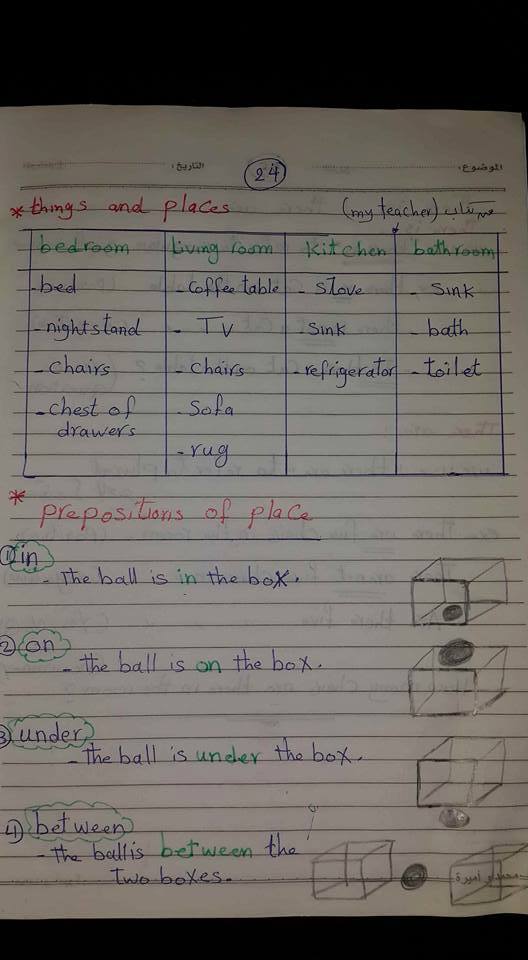 الموضوع: التاريخ:
24
* things and places (my teacher)
bedroom Living room Kitchen bathroom
- bed - Coffee table - stove - Sink
- nightstand - TV Sink - bath
- Chairs - Chairs - refrigerator - toilet
- Chest of - Sofa
drawers
- rug
* prepositions of place
1) in
- The ball is in the box.
2) on
- the ball is on the box.
3 under
- the ball is under the box.
4) between
- the ball is between the
Two boxes.